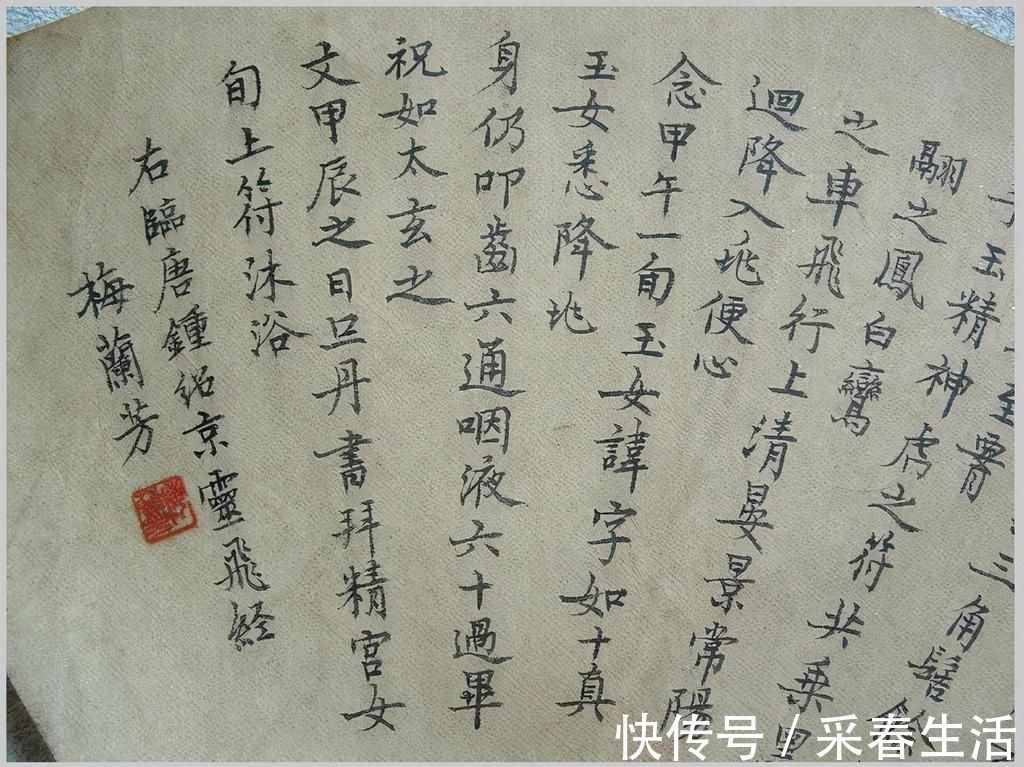 三角髻餘
至腰
玉精神虎之符共乘黑
翮之鳳白鸞
之車飛行上清晏景常陽
迴降入兆便心
念甲午一旬玉女諱字如十真
玉女悉降兆
身仍叩齒六通咽液六十過畢
祝如太玄之
文甲辰之日旦丹書拜精宮女
旬上符沐浴
右臨唐鍾紹京靈飛經
梅蘭芳
快传号/采春生活